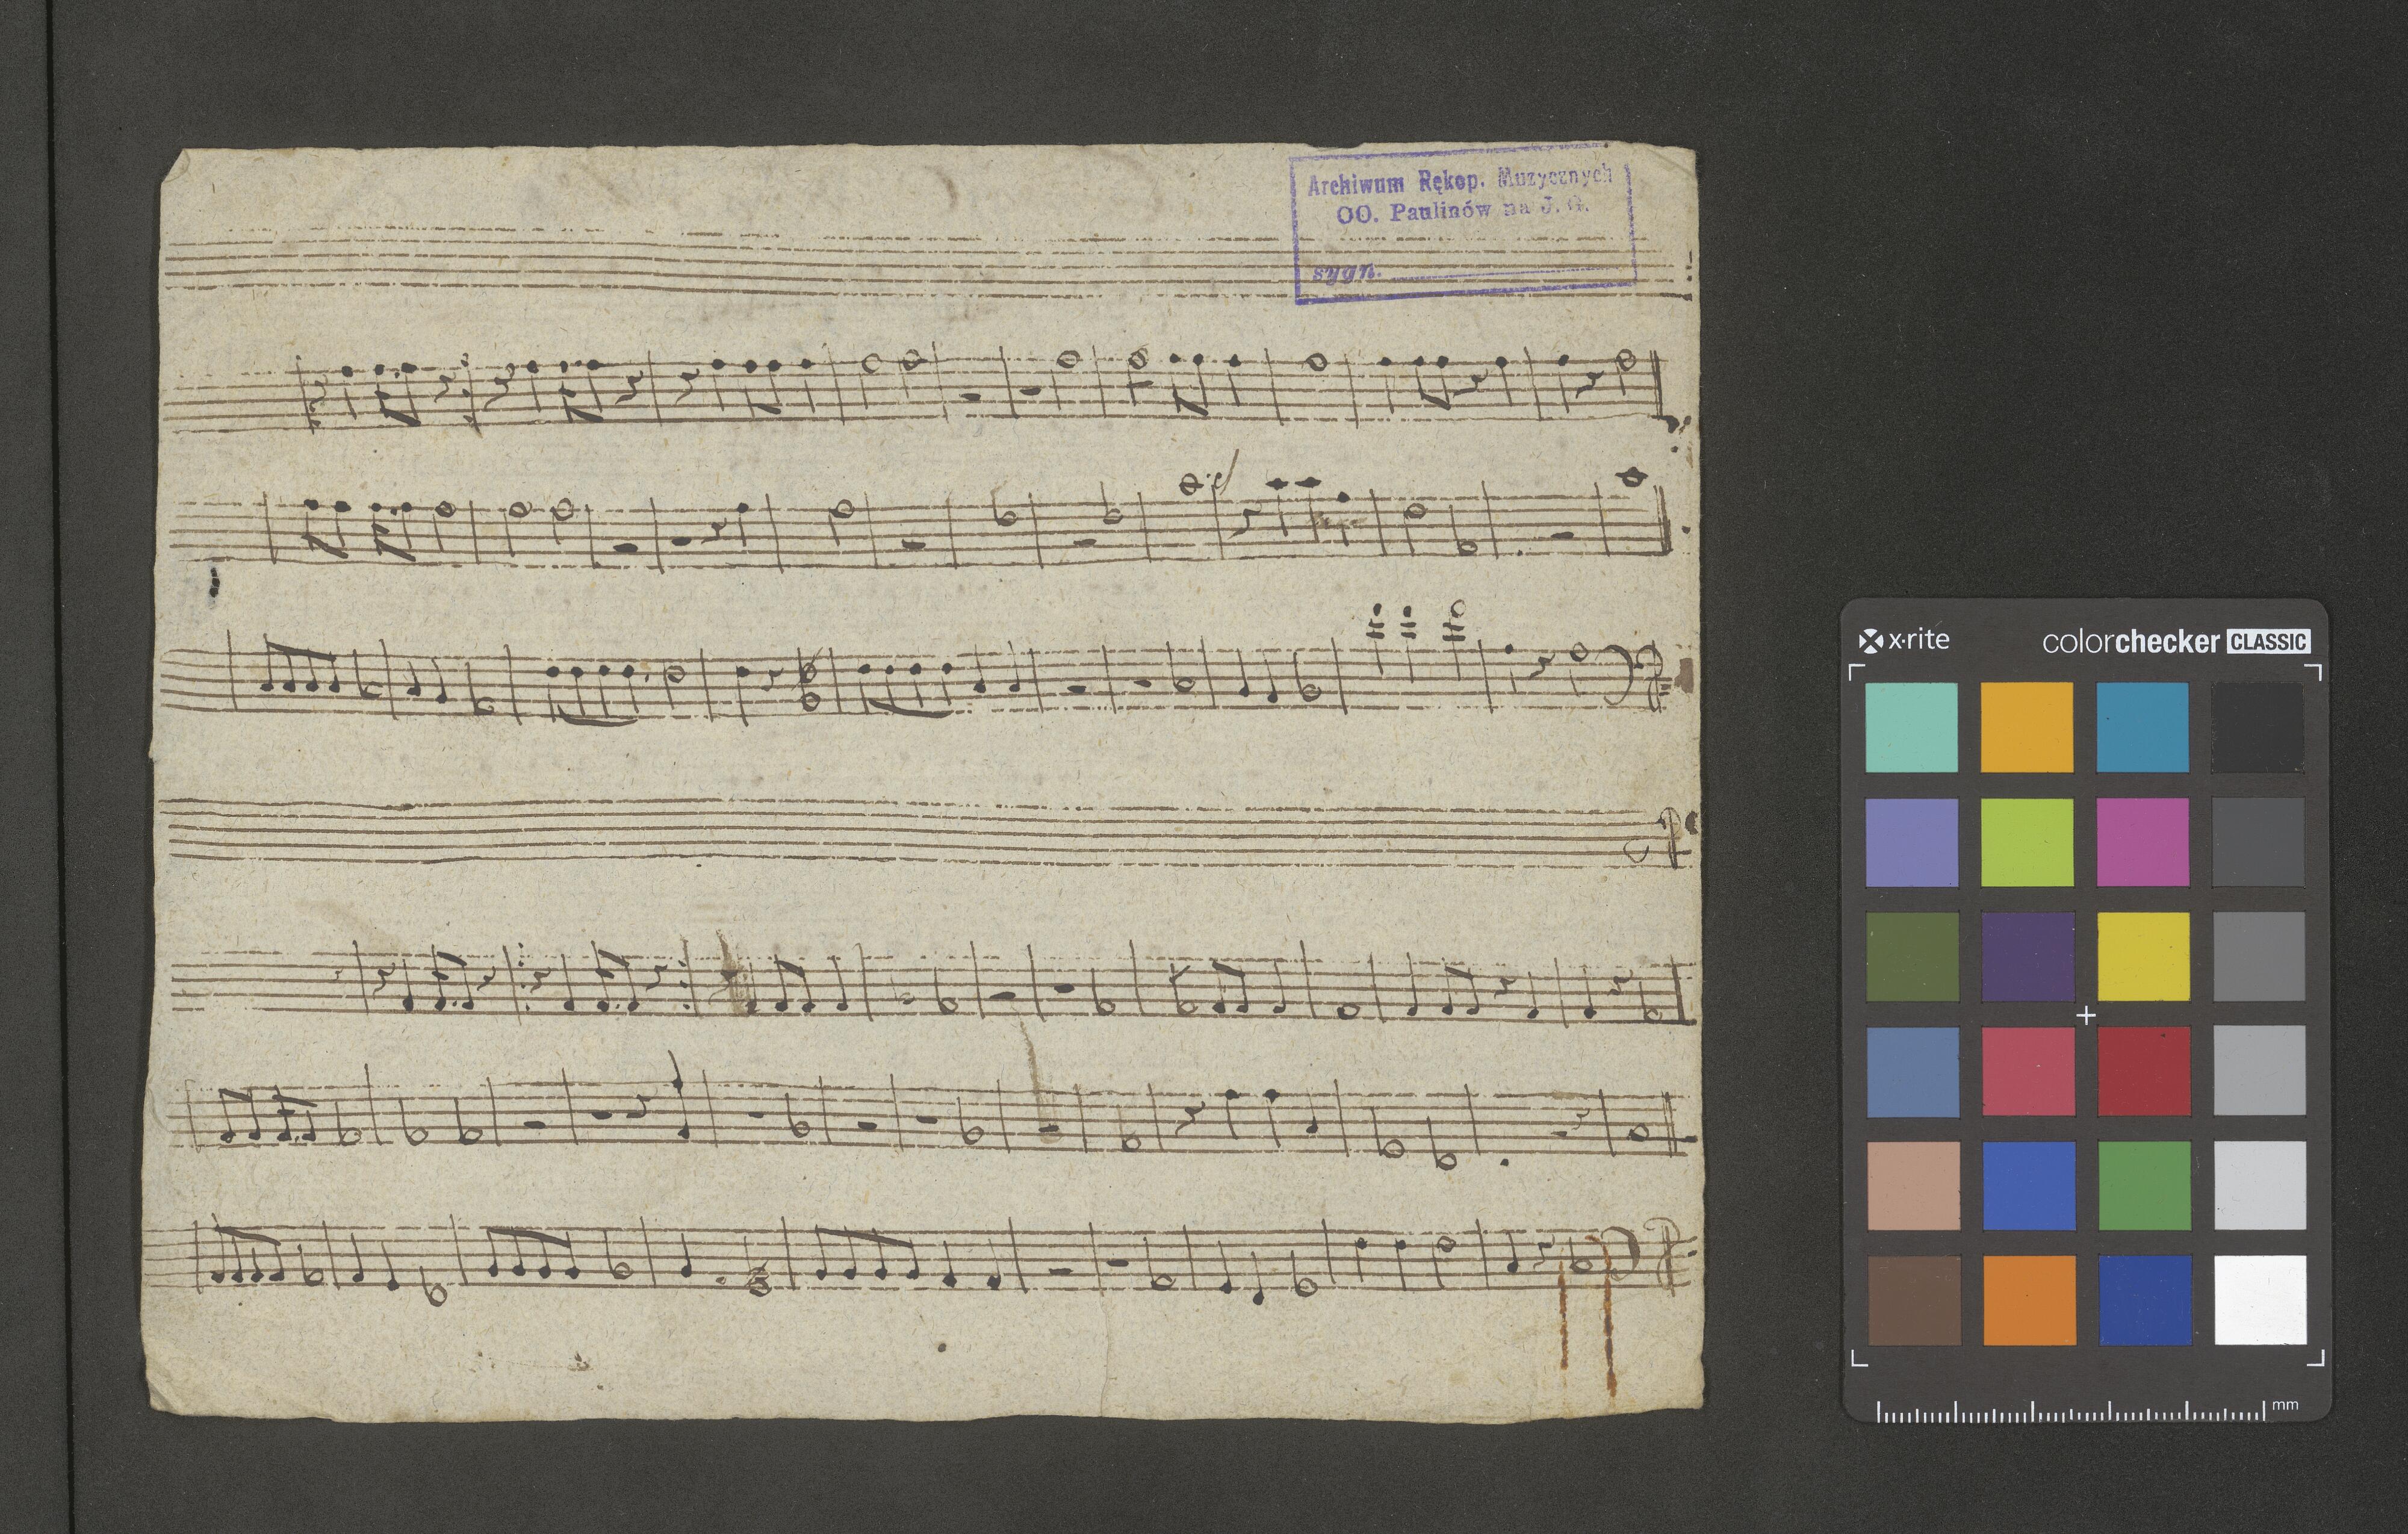 Archiwum Rękop. Muzycznych
OO. Paulinów na J. G.
sygn.
x-rite
colorchecker CLASSIC
mm